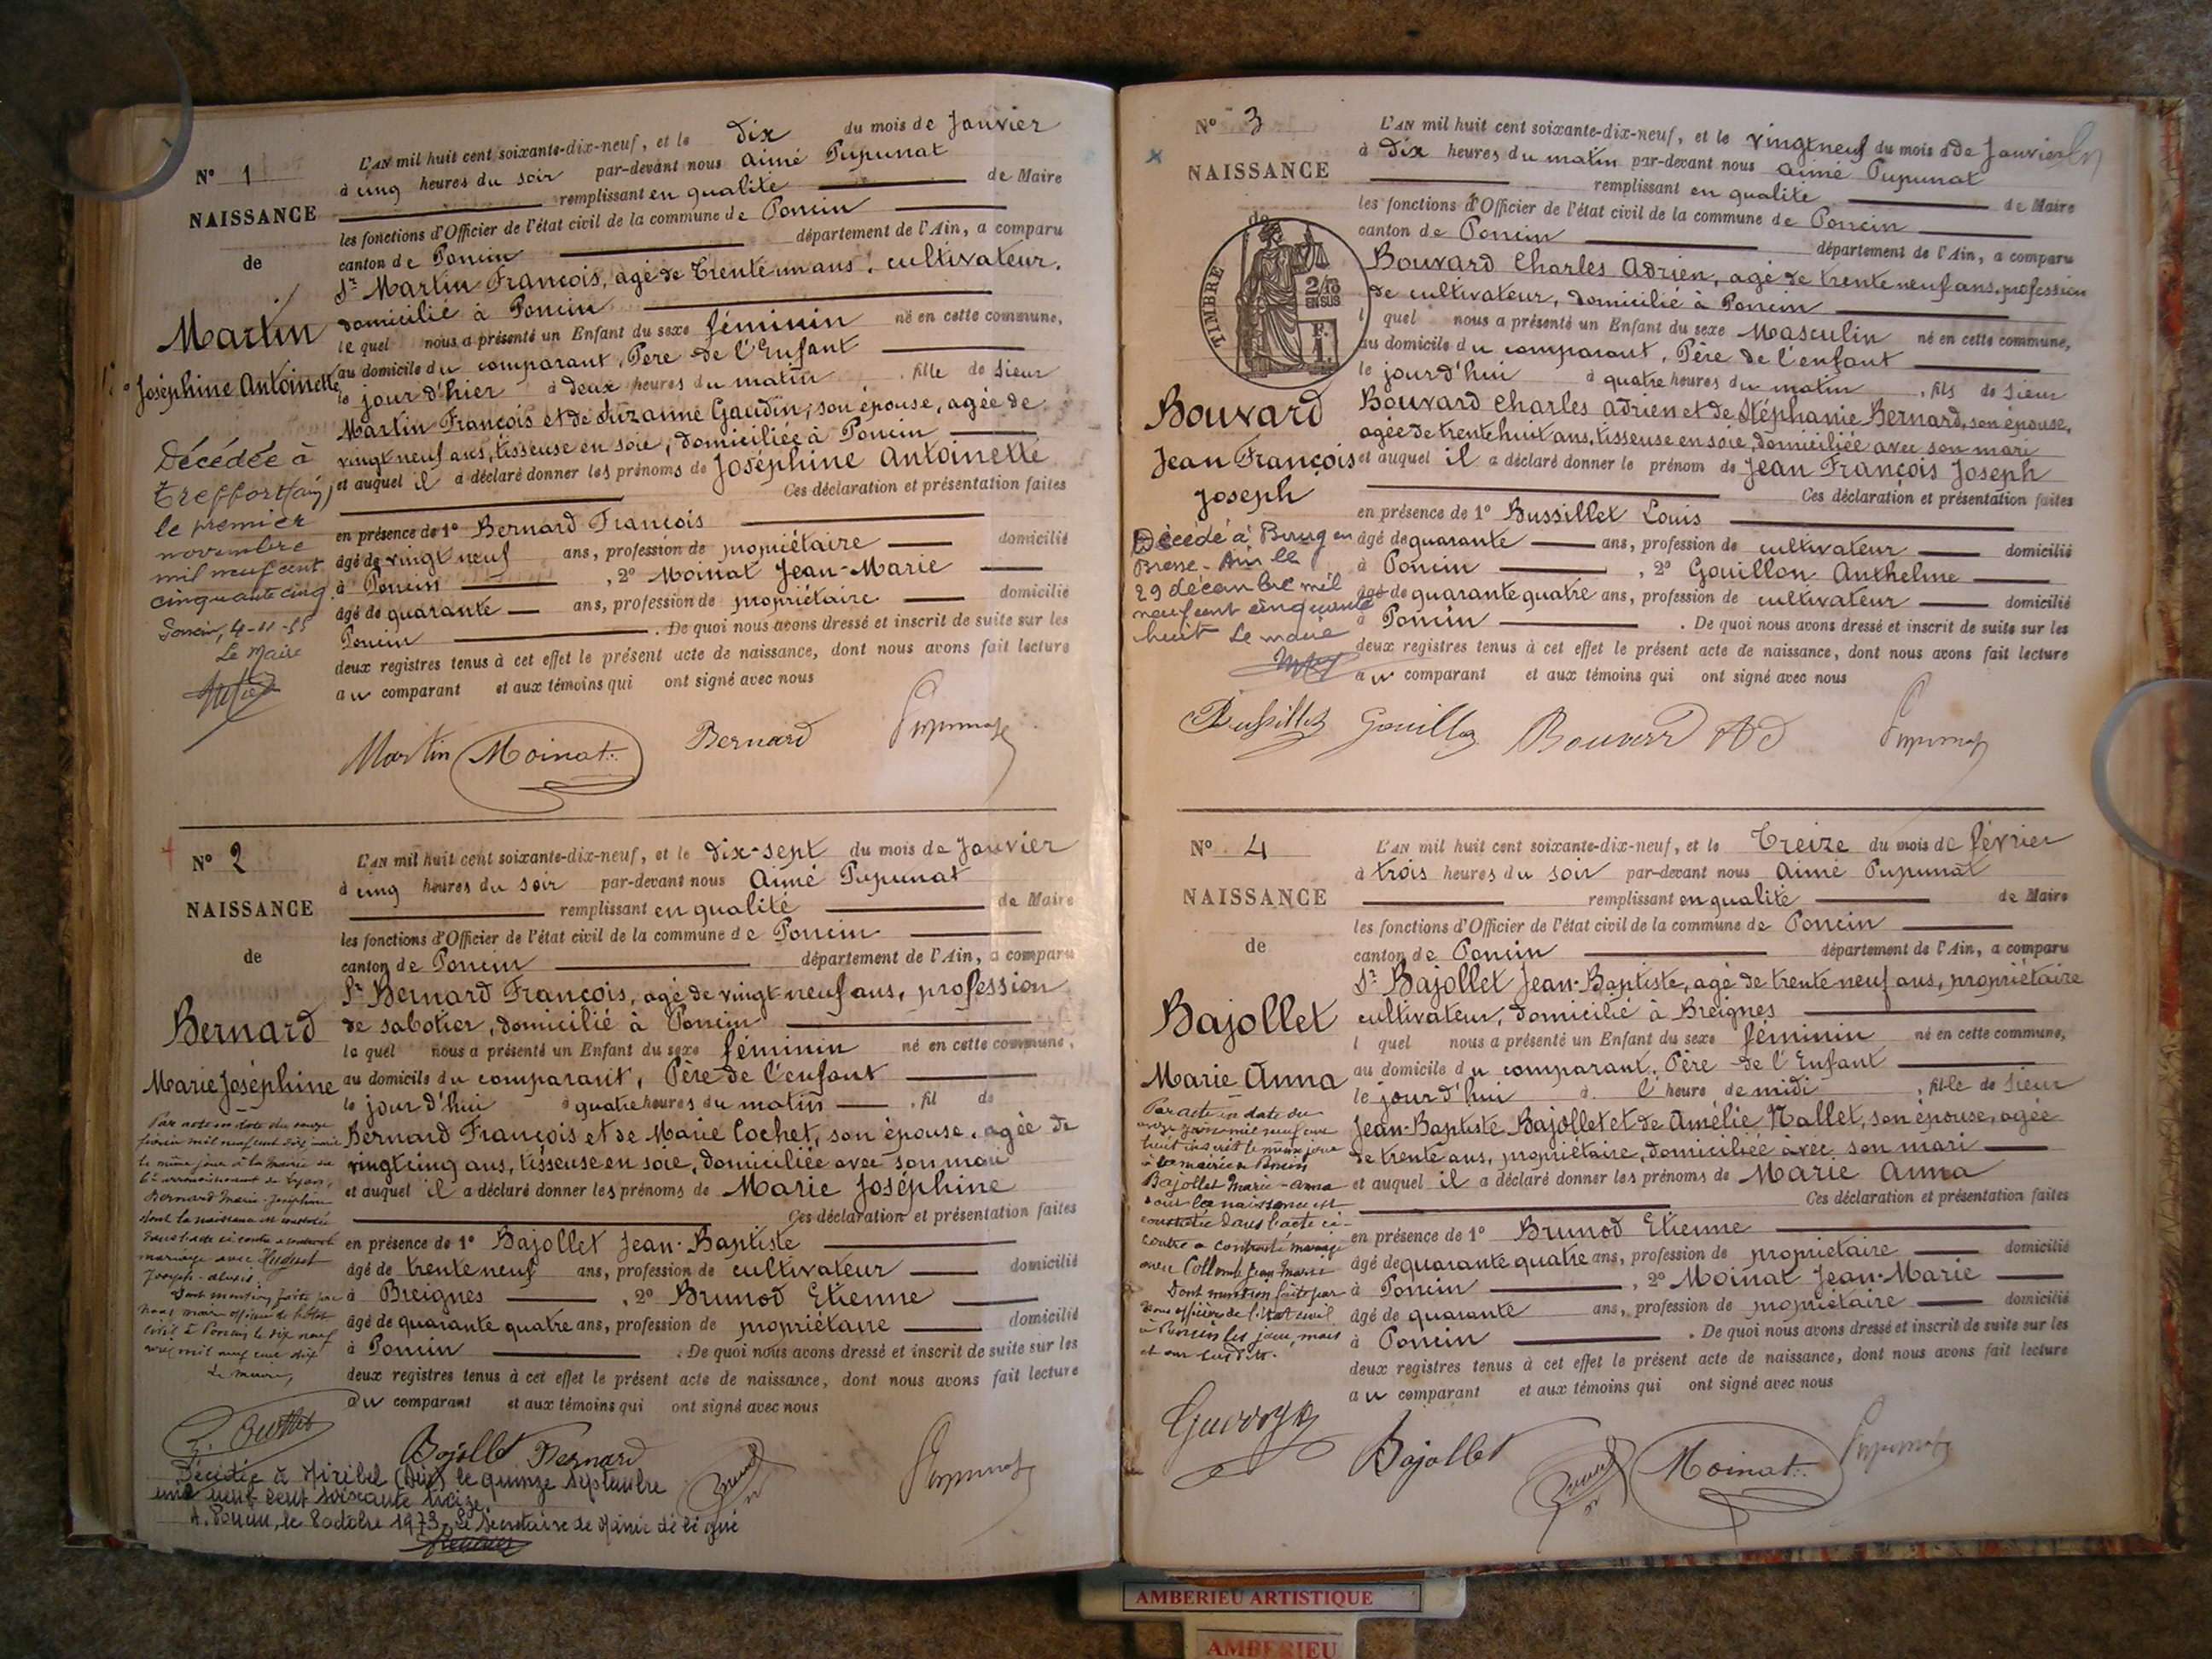 N° 1
NAISSANCE
de
Martin
Joséphine Antoinette
Décédée à
Treffort (Ain)
le premier
novembre
mil neuf cent
cinquante cinq.
Poncin, 4-11-55
Le Maire
L'AN mil huit cent soixante-dix-neuf, et le dix du mois de Janvier
à cinq heures du soir par-devant nous Aimé Pupunat
remplissant en qualité de Maire
les fonctions d'Officier de l'état civil de la commune de Poncin
canton de Poncin département de l'Ain, a comparu
Sr Martin François, agé de trente un ans, cultivateur,
domicilié à Poncin
le quel nous a présenté un Enfant du sexe féminin né en cette commune,
au domicile du comparant, Père de l'Enfant
le jour d'hier à deux heures du matin, fille de Sieur
Martin François et de Suzanne Gaudin, son épouse, agée de
vingt neuf ans, tisseuse en soie, domiciliée à Poncin
et auquel il a déclaré donner les prénoms de Joséphine Antoinette
Ces déclaration et présentation faites
en présence de 1° Bernard François
âgé de vingt neuf ans, profession de propriétaire domicilié
à Poncin, 2° Moinat Jean-Marie
âgé de quarante ans, profession de propriétaire domicilié
Poncin. De quoi nous avons dressé et inscrit de suite sur les
deux registres tenus à cet effet le présent acte de naissance, dont nous avons fait lecture
au comparant et aux témoins qui ont signé avec nous
Martin Moinat Bernard Pupunat
N° 2
NAISSANCE
de
Bernard
Marie Joséphine
Par acte en date du
février mil neuf cent dix
le même jour à la mairie du
arrondissement de Lyon,
Bernard Marie-Joséphine
dont la naissance est constatée
dans l'acte ci contre a contracté
mariage avec
Joseph-Alexis
Dont mention faite par
nous maire officier de l'état
civil à Poncin le dix neuf
mil neuf cent dix
Le maire,
L'AN mil huit cent soixante-dix-neuf, et le dix-sept du mois de Janvier
à cinq heures du soir par-devant nous Aimé Pupunat
remplissant en qualité de Maire
les fonctions d'Officier de l'état civil de la commune de Poncin
canton de Poncin département de l'Ain, a comparu
Sr Bernard François, agé de vingt neuf ans, profession
de sabotier, domicilié à Poncin
le quel nous a présenté un Enfant du sexe féminin né en cette commune,
au domicile du comparant, Père de l'enfant
le jour d'hui à quatre heures du matin, fil de
Bernard François et de Marie Cochet, son épouse, agée de
vingt cinq ans, tisseuse en soie, domiciliée avec son mari
et auquel il a déclaré donner les prénoms de Marie Joséphine
Ces déclaration et présentation faites
en présence de 1° Bajollet Jean-Baptiste
âgé de trente neuf ans, profession de cultivateur domicilié
à Breignes, 2° Brunod Etienne
âgé de quarante quatre ans, profession de propriétaire domicilié
à Poncin. De quoi nous avons dressé et inscrit de suite sur les
deux registres tenus à cet effet le présent acte de naissance, dont nous avons fait lecture
au comparant et aux témoins qui ont signé avec nous
Bajollet Bernard Brunod Pupunat
Décédée à Miribel (Ain) le quinze Septembre
mil neuf cent soixante treize.
A Poncin, le 8 octobre 1973, Le Secrétaire de Mairie délégué
N° 3
NAISSANCE
de
TIMBRE
2/10
EN SUS
F.
1
Bouvard
Jean François
Joseph
Décédé à Bourg en
Bresse - Ain le
29 décembre mil
neuf cent cinquante
huit Le maire
L'AN mil huit cent soixante-dix-neuf, et le vingt neuf du mois de Janvier
à dix heures du matin par-devant nous Aimé Pupunat
remplissant en qualité de Maire
les fonctions d'Officier de l'état civil de la commune de Poncin
canton de Poncin département de l'Ain, a comparu
Bouvard Charles Adrien, agé de trente neuf ans, profession
de cultivateur, domicilié à Poncin
l quel nous a présenté un Enfant du sexe Masculin né en cette commune,
au domicile du comparant, Père de l'enfant
le jour d'hui à quatre heures du matin, fils de Sieur
Bouvard Charles Adrien et de Stéphanie Bernard, son épouse,
agée de trente huit ans, tisseuse en soie, domiciliée avec son mari
et auquel il a déclaré donner le prénom de Jean François Joseph
Ces déclaration et présentation faites
en présence de 1° Bussillet Louis
âgé de quarante ans, profession de cultivateur domicilié
à Poncin, 2° Gouillon Anthelme
âgé de quarante quatre ans, profession de cultivateur domicilié
à Poncin. De quoi nous avons dressé et inscrit de suite sur les
deux registres tenus à cet effet le présent acte de naissance, dont nous avons fait lecture
au comparant et aux témoins qui ont signé avec nous
Bussillet Gouillon Bouvard Ad Pupunat
N° 4
NAISSANCE
de
Bajollet
Marie Anna
Par acte en date du
onze juin mil neuf cent
huit inscrit le même jour
à la mairie de Poncin
Bajollet Marie-Anna
dont la naissance est
constatée dans l'acte ci-
contre a contracté mariage
avec Collomb Jean Marie
Dont mention faite par
nous officier de l'état civil
à Poncin les jour, mois
et an susdits.
L'AN mil huit cent soixante-dix-neuf, et le treize du mois de février
à trois heures du soir par-devant nous Aimé Pupunat
remplissant en qualité de Maire
les fonctions d'Officier de l'état civil de la commune de Poncin
canton de Poncin département de l'Ain, a comparu
Sr Bajollet Jean-Baptiste, agé de trente neuf ans, propriétaire
cultivateur, domicilié à Breignes
l quel nous a présenté un Enfant du sexe féminin né en cette commune,
au domicile du comparant, Père de l'Enfant
le jour d'hui à l'heure de midi, fille de Sieur
Jean-Baptiste Bajollet et de Amélie Nallet, son épouse, agée
de trente ans, propriétaire, domiciliée avec son mari
et auquel il a déclaré donner les prénoms de Marie Anna
Ces déclaration et présentation faites
en présence de 1° Brunod Etienne
âgé de quarante quatre ans, profession de propriétaire domicilié
à Poncin, 2° Moinat Jean-Marie
âgé de quarante ans, profession de propriétaire domicilié
à Poncin. De quoi nous avons dressé et inscrit de suite sur les
deux registres tenus à cet effet le présent acte de naissance, dont nous avons fait lecture
au comparant et aux témoins qui ont signé avec nous
Bajollet Brunod Moinat Pupunat
AMBERIEU ARTISTIQUE
AMBERIEU